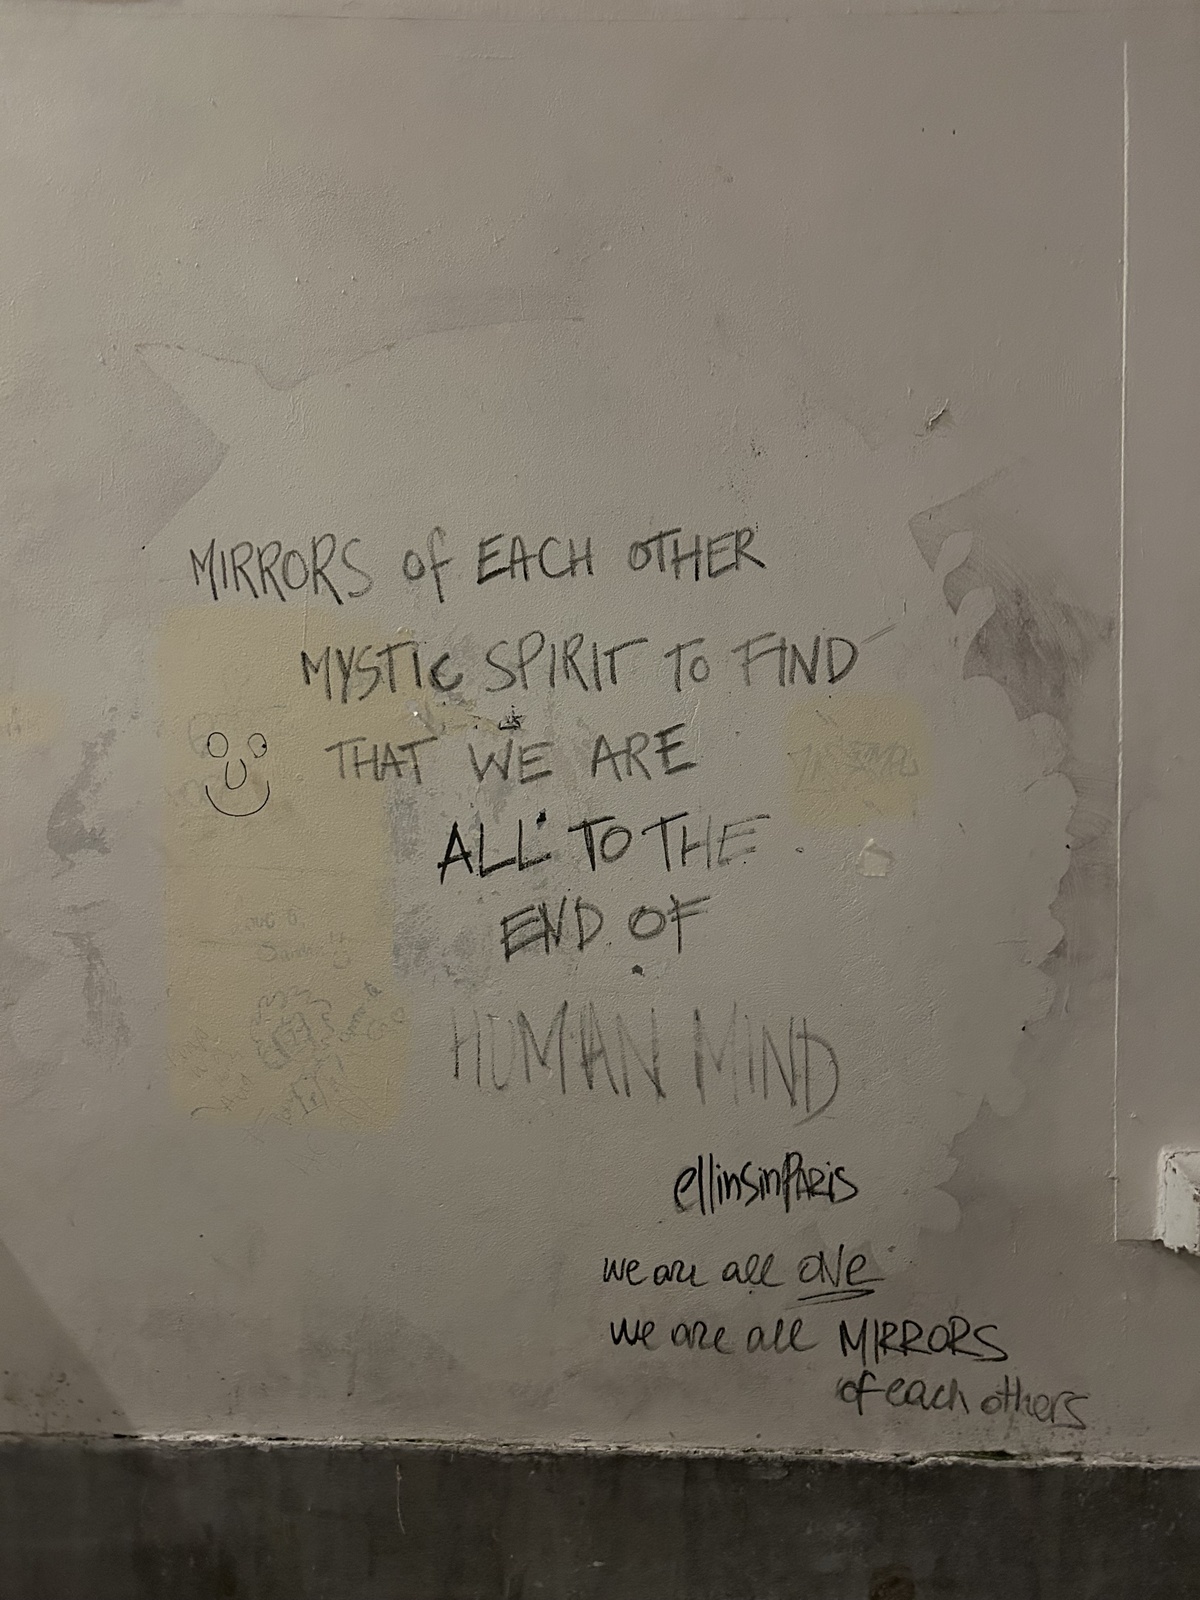 MIRRORS of EACH OTHER
MYSTIC SPIRIT TO FIND
THAT WE ARE
ALL TO THE
END OF
HUMAN MIND
ellinsinPARIS
we are all ONe
we are all MIRRORS
of each others